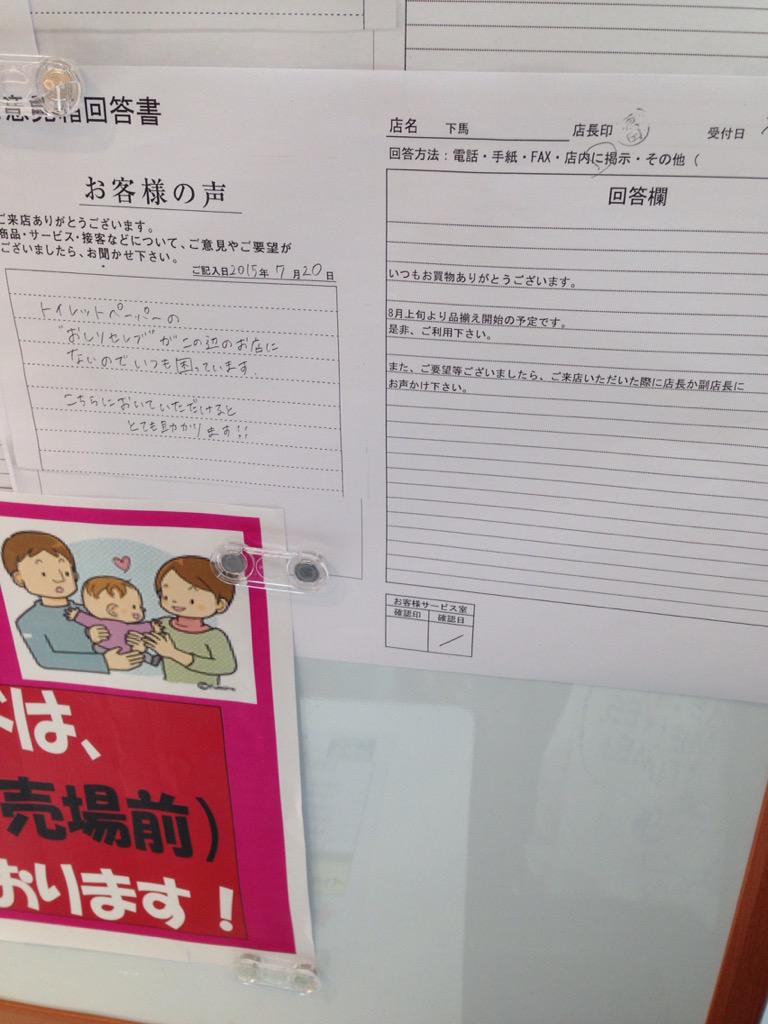 意見箱回答書
お客様の声
ご来店ありがとうございます。
商品・サービス・接客などについて、ご意見やご要望が
ございましたら、お聞かせ下さい。
ご記入日2015年 7月20日
トイレットペーパーの
"おしりセレブ"がこの辺のお店に
ないのでいつも困っています.
こちらにおいていただけると
とても助かります!!
店名 下馬 店長印 受付日
回答方法：電話・手紙・FAX・店内に掲示・その他（
回答欄
いつもお買物ありがとうございます。
8月上旬より品揃え開始の予定です。
是非、ご利用下さい。
また、ご要望等ございましたら、ご来店いただいた際に店長か副店長に
お声かけ下さい。
お客様サービス室
確認印 確認日
は、
売場前）
おります！